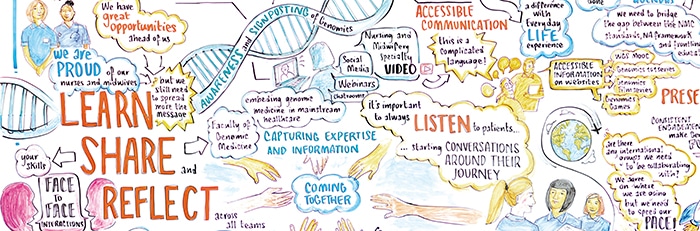 We have
great
opportunities
ahead of us
we are
PROUD of our
nurses and midwives
but we
still need
to spread
more the
message
LEARN
SHARE and
REFLECT
your
skills
FACE
to
FACE
INTERACTIONS
AWARENESS and SIGNPOSTING of Genomics
Social
Media
Webinars
Chatrooms
Nursing and
Midwifery
Specialty
VIDEO
embedding genomic
medicine in mainstream
healthcare
Faculty of
Genomic
Medicine
CAPTURING EXPERTISE
AND INFORMATION
COMING
TOGETHER
across
all teams
ACCESSIBLE
COMMUNICATION
this is a
complicated
language!
it's important
to always LISTEN to patients...
... starting CONVERSATIONS
AROUND THEIR
JOURNEY
a difference
with
Everyday
LIFE
experience
we need to bridge
the gap between the
standards, NA framework
and
ACCESSIBLE
INFORMATION
on websites
Genomics
Genomics
Game
PRESE
CONSISTENT
make
are there
any international
groups we need
to be collaborating
with?
we agree
on where
we are going
but we need
to speed our
PACE!